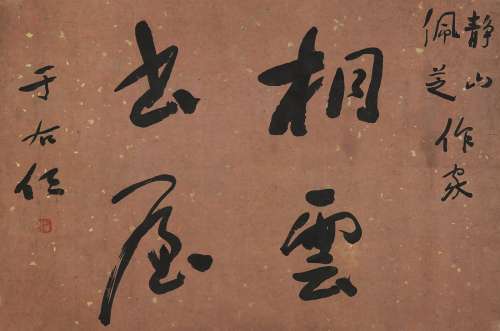 静山
佩芝作家
相雲
书屋
于右任